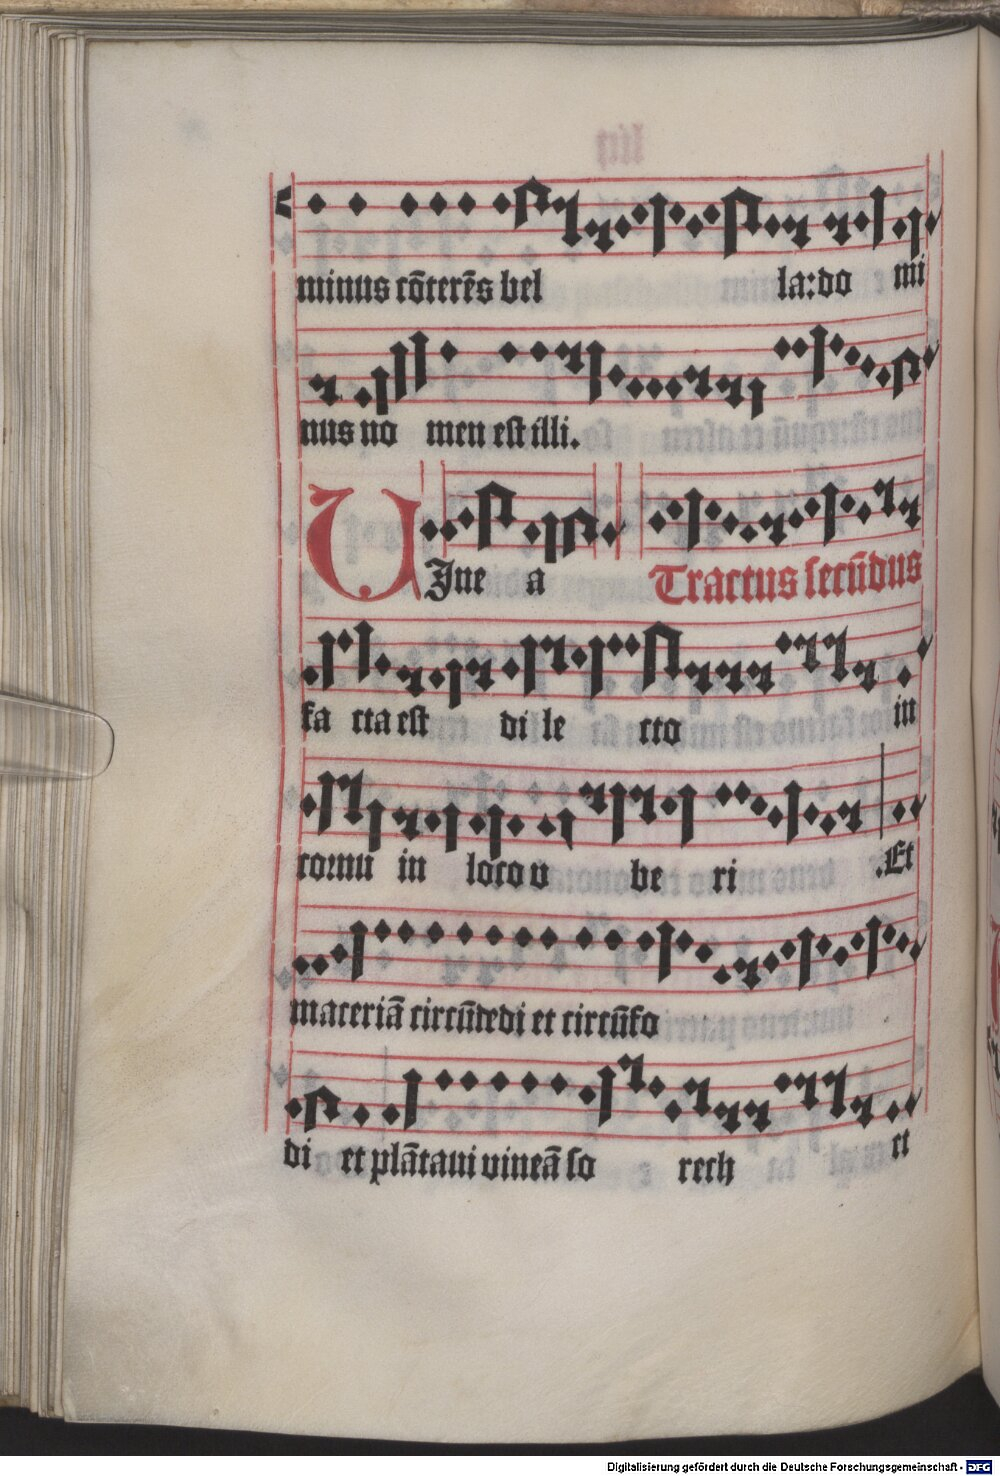 minus cōterēs bel la:do mi
nus no men est illi.
VIne a Tractus secūdus
fa cta est di le cto in
cornu in loco u be ri .Et
maceriā circūdedi et circūfo
di et plātaui vineā so rech et
Digitalisierung gefördert durch die Deutsche Forschungsgemeinschaft - DFG